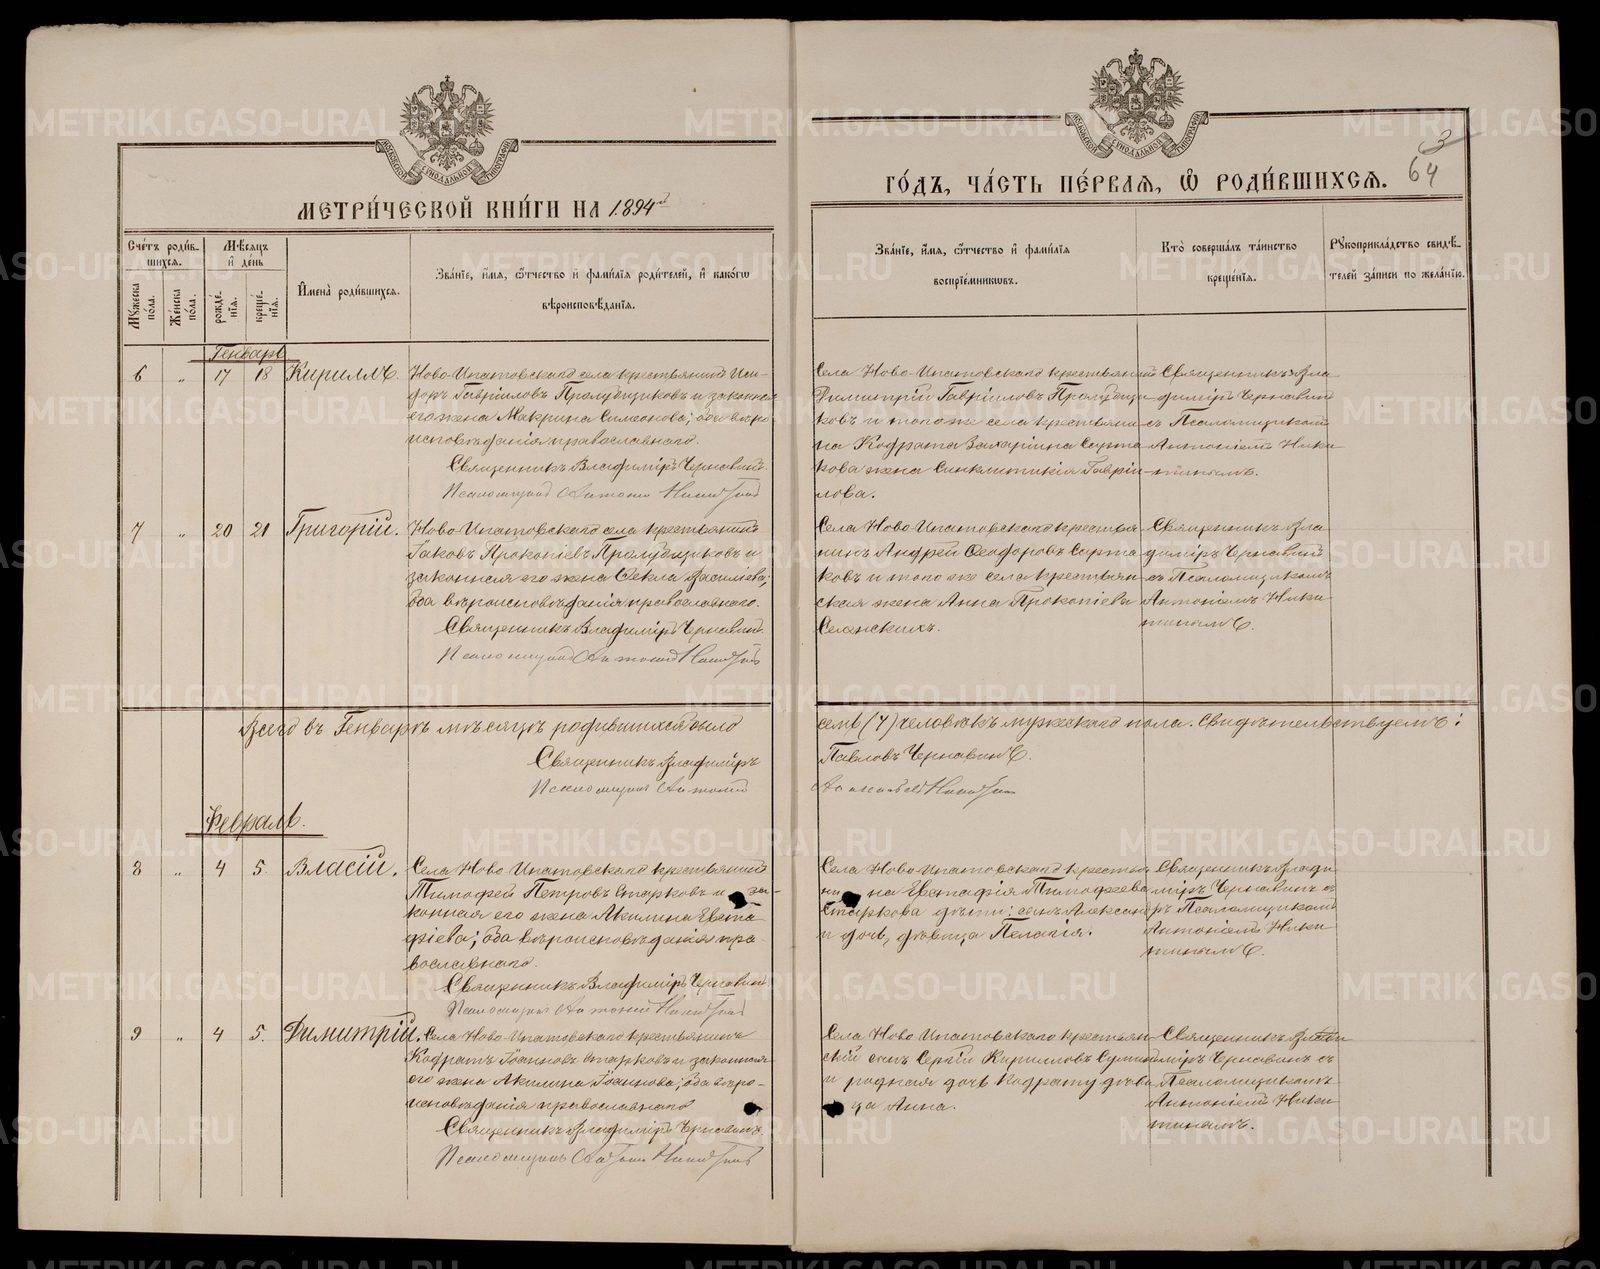 МОСКОВСКОЙ СѴНОДАЛЬНОЙ ТИПОГРАФІИ
МЕТРИ́ЧЕСКОЙ КНИ́ГИ НА 1894й
Сче́тъ роди́в-
шихся.
Мꙋ́жеска
по́ла.
Же́нска
по́ла.
Мѣ́сяцъ
и҆ де́нь
рожде́-
нїя.
креще́-
нїя.
И҆мена̀ роди́вшихся.
Зва́нїе, и҆́мя, ѻ҆́тчество и҆ фами́лїя роди́телей, и҆ како́гѡ
вѣроисповѣ́данїя.
Генварь
6 „ 17 18 Кириллъ.
Ново-Ипатовскаго села крестьянинъ Иси-
доръ Гавріиловъ Пролубщиковъ и законная
его жена Макрина Симеонова; оба вѣро
исповѣданія православнаго.
Священникъ Владиміръ Чернавинъ.
Псаломщикъ Антоній Никитинъ
7 „ 20 21 Григорій.
Ново-Ипатовскаго села крестьянинъ
Іаковъ Прокопіевъ Пролубщиковъ и
законная его жена Ѳекла Василіева;
оба вѣроисповѣданія православнаго.
Священникъ Владиміръ Чернавинъ.
Псаломщикъ Антоній Никитинъ
Всего въ Генварѣ мѣсяцѣ родившихся было
Священникъ Владиміръ
Псаломщикъ Антоній
Февраль.
8 „ 4 5. Власій.
Села Ново-Ипатовскаго крестьянинъ
Тимофей Петровъ Старковъ и за-
конная его жена Акилина Евста
фіева; оба вѣроисповѣданія пра-
вославнаго.
Священникъ Владиміръ Чернавинъ
Псаломщикъ Антоній Никитинъ
9 „ 4 5. Димитрій.
Села Ново-Ипатовскаго крестьянинъ
Кодратъ Іоанновъ Старковъ и законная
его жена Акилина Іоаннова; оба вѣро-
исповѣданія православнаго
Священникъ Владиміръ Чернавинъ.
Псаломщикъ Антоній Никитинъ
МОСКОВСКОЙ СѴНОДАЛЬНОЙ ТИПОГРАФІИ
3
64
ГО́ДЪ, ЧА́СТЬ ПЕ́РВАЯ, Ѡ҆ РОДИ́ВШИХСЯ.
Зва́нїе, и҆́мя, ѻ҆́тчество и҆ фами́лїя
воспрїе́мникѡвъ.
Кто̀ соверша́лъ та́инство
креще́нїя.
Рꙋкоприкла́дство свидѣ́-
телей за́писи по жела́нїю.
Села Ново-Ипатовскаго крестьянинъ
Димитрій Гавріиловъ Пролубщи-
ковъ и того же села крестьяни-
на Кодрата Захаріина Сурта
кова жена Синклитикія Гавріи-
лова.
Священникъ Вла
диміръ Чернавин
съ Псаломщикомъ
Антоніемъ Ники
тинымъ.
Села Ново-Ипатовскаго крестья
нинъ Андрей Ѳеодоровъ Сурта
ковъ и того же села крестьян
ская жена Анна Прокопіева
Селянскихъ.
Священникъ Вла
диміръ Чернавин
съ Псаломщикомъ
Антоніемъ Ники
тинымъ.
семь (7) человѣкъ мужескаго пола. Свидѣтельствуемъ:
Павловъ Чернавинъ.
Никитинъ
Села Ново-Ипатовскаго крестья
нина Евстафія Тимофеева
Старкова дѣти: сынъ Александръ
и дочь, дѣвица Пелагія.
Священникъ Влади
міръ Чернавинъ съ
Псаломщикомъ
Антоніемъ Ники
тинымъ.
Села Ново-Ипатовскаго крестьян
скій сынъ Сергій Кирилловъ
и родная дочь Кодрату дѣви
ца Анна.
Священникъ Влади
міръ Чернавинъ съ
Псаломщикомъ
Антоніемъ Ники
тинымъ.
METRIKI.GASO-URAL.RU